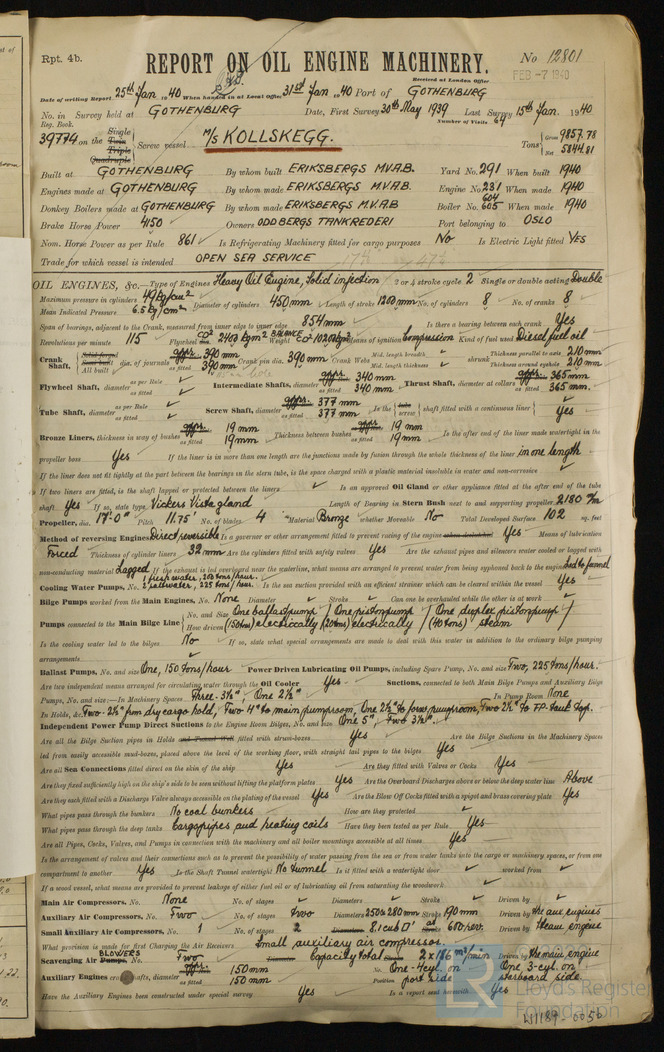 Rpt. 4b.
REPORT ON OIL ENGINE MACHINERY.
No 12801
Received at London Office
FEB -7 1940
Date of writing Report 25th Jan 1940 When handed in at Local Office 31st Jan 1940 Port of GOTHENBURG
No. in Survey held at GOTHENBURG Date, First Survey 30th May 1939 Last Survey 15th Jan. 1940
Reg. Book. Number of Visits 64
39774 on the Single Twin Triple Quadruple Screw vessel M/S KOLLSKEGG. Tons Gross 9857.78 Net 5844.81
Built at GOTHENBURG By whom built ERIKSBERGS M.V.A.B. Yard No. 291 When built 1940
Engines made at GOTHENBURG By whom made ERIKSBERGS M.V.A.B. Engine No. 231 When made 1940
Donkey Boilers made at GOTHENBURG By whom made ERIKSBERGS M.V.A.B Boiler No. 604 605 When made 1940
Brake Horse Power 4150 Owners ODDBERGS TANKREDERI Port belonging to OSLO
Nom. Horse Power as per Rule 861 Is Refrigerating Machinery fitted for cargo purposes No Is Electric Light fitted YES
Trade for which vessel is intended OPEN SEA SERVICE
OIL ENGINES, &c.—Type of Engines Heavy Oil Engine, Solid injection 2 or 4 stroke cycle 2 Single or double acting Double
Maximum pressure in cylinders 49 kg/cm² Diameter of cylinders 450 mm Length of stroke 1200 mm No. of cylinders 8 No. of cranks 8
Mean Indicated Pressure 6.5 kg/cm²
Span of bearings, adjacent to the Crank, measured from inner edge to inner edge 854 mm Is there a bearing between each crank Yes
Revolutions per minute 115 Flywheel dia. 2400 kgm² Weight Means of ignition Compression Kind of fuel used Diesel fuel oil
Crank Shaft, Solid forged Semi built All built dia. of journals appr. 390 mm as fitted 390 mm Crank pin dia. 390 mm Crank Webs Mid. length breadth Mid. length thickness shrunk Thickness parallel to axis 210 mm Thickness around eyehole 210 mm
Flywheel Shaft, diameter as per Rule as fitted Intermediate Shafts, diameter appr. 340 mm as fitted 340 mm Thrust Shaft, diameter at collars appr. 365 mm as fitted 365 mm.
Tube Shaft, diameter as per Rule as fitted Screw Shaft, diameter appr. 377 mm as fitted 377 mm Is the tube screw shaft fitted with a continuous liner Yes
Bronze Liners, thickness in way of bushes appr. 19 mm as fitted 19 mm Thickness between bushes appr. 19 mm as fitted 19 mm Is the after end of the liner made watertight in the
propeller boss Yes If the liner is in more than one length are the junctions made by fusion through the whole thickness of the liner in one length
If the liner does not fit tightly at the part between the bearings in the stern tube, is the space charged with a plastic material insoluble in water and non-corrosive
If two liners are fitted, is the shaft lapped or protected between the liners Is an approved Oil Gland or other appliance fitted at the after end of the tube
shaft Yes If so, state type Vickers Vista gland Length of Bearing in Stern Bush next to and supporting propeller 2180 m/m
Propeller, dia. 17'-0" Pitch 11.75 No. of blades 4 Material Bronze whether Moveable No Total Developed Surface 102 sq. feet
Method of reversing Engines Direct reversible Is a governor or other arrangement fitted to prevent racing of the engine Yes Means of lubrication
Forced Thickness of cylinder liners 32 mm Are the cylinders fitted with safety valves Yes Are the exhaust pipes and silencers water cooled or lagged with
non-conducting material Lagged If the exhaust is led overboard near the waterline, what means are arranged to prevent water being syphoned back to the engine led to funnel
Cooling Water Pumps, No. 1 fresh water, 210 tons/hour. 2 saltwater, 225 tons/hour. Is the sea suction provided with an efficient strainer which can be cleared within the vessel Yes
Bilge Pumps worked from the Main Engines, No. None Diameter Stroke Can one be overhauled while the other is at work
Pumps connected to the Main Bilge Line No. and Size One ballast pump / One piston pump / One duplex piston pump /
How driven (150 tons) electrically (20 tons) electrically (40 tons) steam
Is the cooling water led to the bilges No If so, state what special arrangements are made to deal with this water in addition to the ordinary bilge pumping
arrangements
Ballast Pumps, No. and size One, 150 tons/hour Power Driven Lubricating Oil Pumps, including Spare Pump, No. and size Two, 225 tons/hour.
Are two independent means arranged for circulating water through the Oil Cooler Yes Suctions, connected to both Main Bilge Pumps and Auxiliary Bilge
Pumps, No. and size:—In Machinery Spaces Three-3½", One 2½" In Pump Room None
In Holds, &c. Two-2½" from dry cargo hold, Two 4" to main pumproom, One 2½" to forw. pumproom, Two 2½" to F.P. tank top.
Independent Power Pump Direct Suctions to the Engine Room Bilges, No. and size One 5", Two 3½".
Are all the Bilge Suction pipes in Holds and Tunnel Well fitted with strum-boxes Yes Are the Bilge Suctions in the Machinery Space
led from easily accessible mud-boxes, placed above the level of the working floor, with straight tail pipes to the bilges Yes
Are all Sea Connections fitted direct on the skin of the ship Yes Are they fitted with Valves or Cocks Yes
Are they fixed sufficiently high on the ship's side to be seen without lifting the platform plates Yes Are the Overboard Discharges above or below the deep water line Above
Are they each fitted with a Discharge Valve always accessible on the plating of the vessel Yes Are the Blow Off Cocks fitted with a spigot and brass covering plate Yes
What pipes pass through the bunkers No coal bunkers How are they protected
What pipes pass through the deep tanks Cargopipes and heating coils Have they been tested as per Rule Yes
Are all Pipes, Cocks, Valves, and Pumps in connection with the machinery and all boiler mountings accessible at all times Yes
Is the arrangement of valves and their connections such as to prevent the possibility of water passing from the sea or from water tanks into the cargo or machinery spaces, or from one
compartment to another Yes Is the Shaft Tunnel watertight No tunnel Is it fitted with a watertight door worked from
If a wood vessel, what means are provided to prevent leakage of either fuel oil or of lubricating oil from saturating the woodwork
Main Air Compressors, No. None No. of stages Diameters Stroke Driven by
Auxiliary Air Compressors, No. Two No. of stages two Diameters 250 x 280 mm Stroke 190 mm Driven by the aux. engines
Small Auxiliary Air Compressors, No. 1 No. of stages 2 Diameters 8.1 cub. at Stroke 600 rev. Driven by Steam engine
What provision is made for first Charging the Air Receivers Small auxiliary air compressor.
Scavenging Air Pumps, BLOWERS No. Two Diameter Capacity total Stroke 2 x 186 m³/min Driven by the main engine
Auxiliary Engines crankshafts, diameter appr. 150 mm as fitted 150 mm No. One-4 cyl. on One 3-cyl. on
Position port side starboard side.
Have the Auxiliary Engines been constructed under special survey Yes Is a report sent herewith Yes
Lloyd's Register
Foundation
W1189-0056